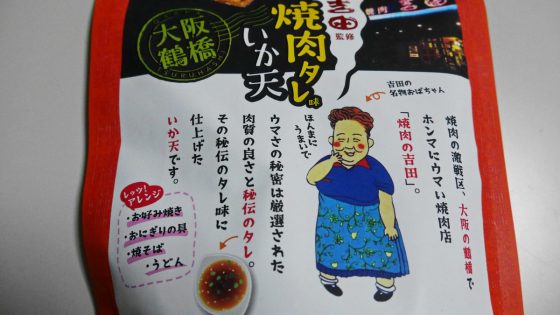 吉田
監修
焼肉
焼肉タレ味
いか天
大阪
鶴橋
TSURUHASHI
吉田の
名物おばちゃん
ほんまに
うまいで
焼肉の激戦区、大阪の鶴橋で
ホンマにウマい焼肉店
「焼肉の吉田」。
ウマさの秘密は厳選された
肉質の良さと秘伝のタレ。
その秘伝のタレ味に
仕上げた
いか天です。
レッツ!
アレンジ
・お好み焼き
・おにぎりの具
・焼そば
・うどん